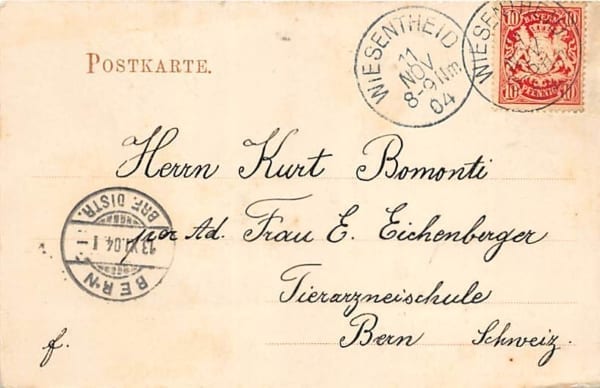 POSTKARTE.
WIESENTHEID
11
NOV
8-9 Nm
04
WIESENTHEID
10 BAYERN 10
10 PFENNIG 10
Herrn Kurt Bomonti
per Ad. Frau E. Eichenberger
Tierarzneischule
Bern Schweiz.
f.
BERN
13.XI.04
BRF. DISTR.